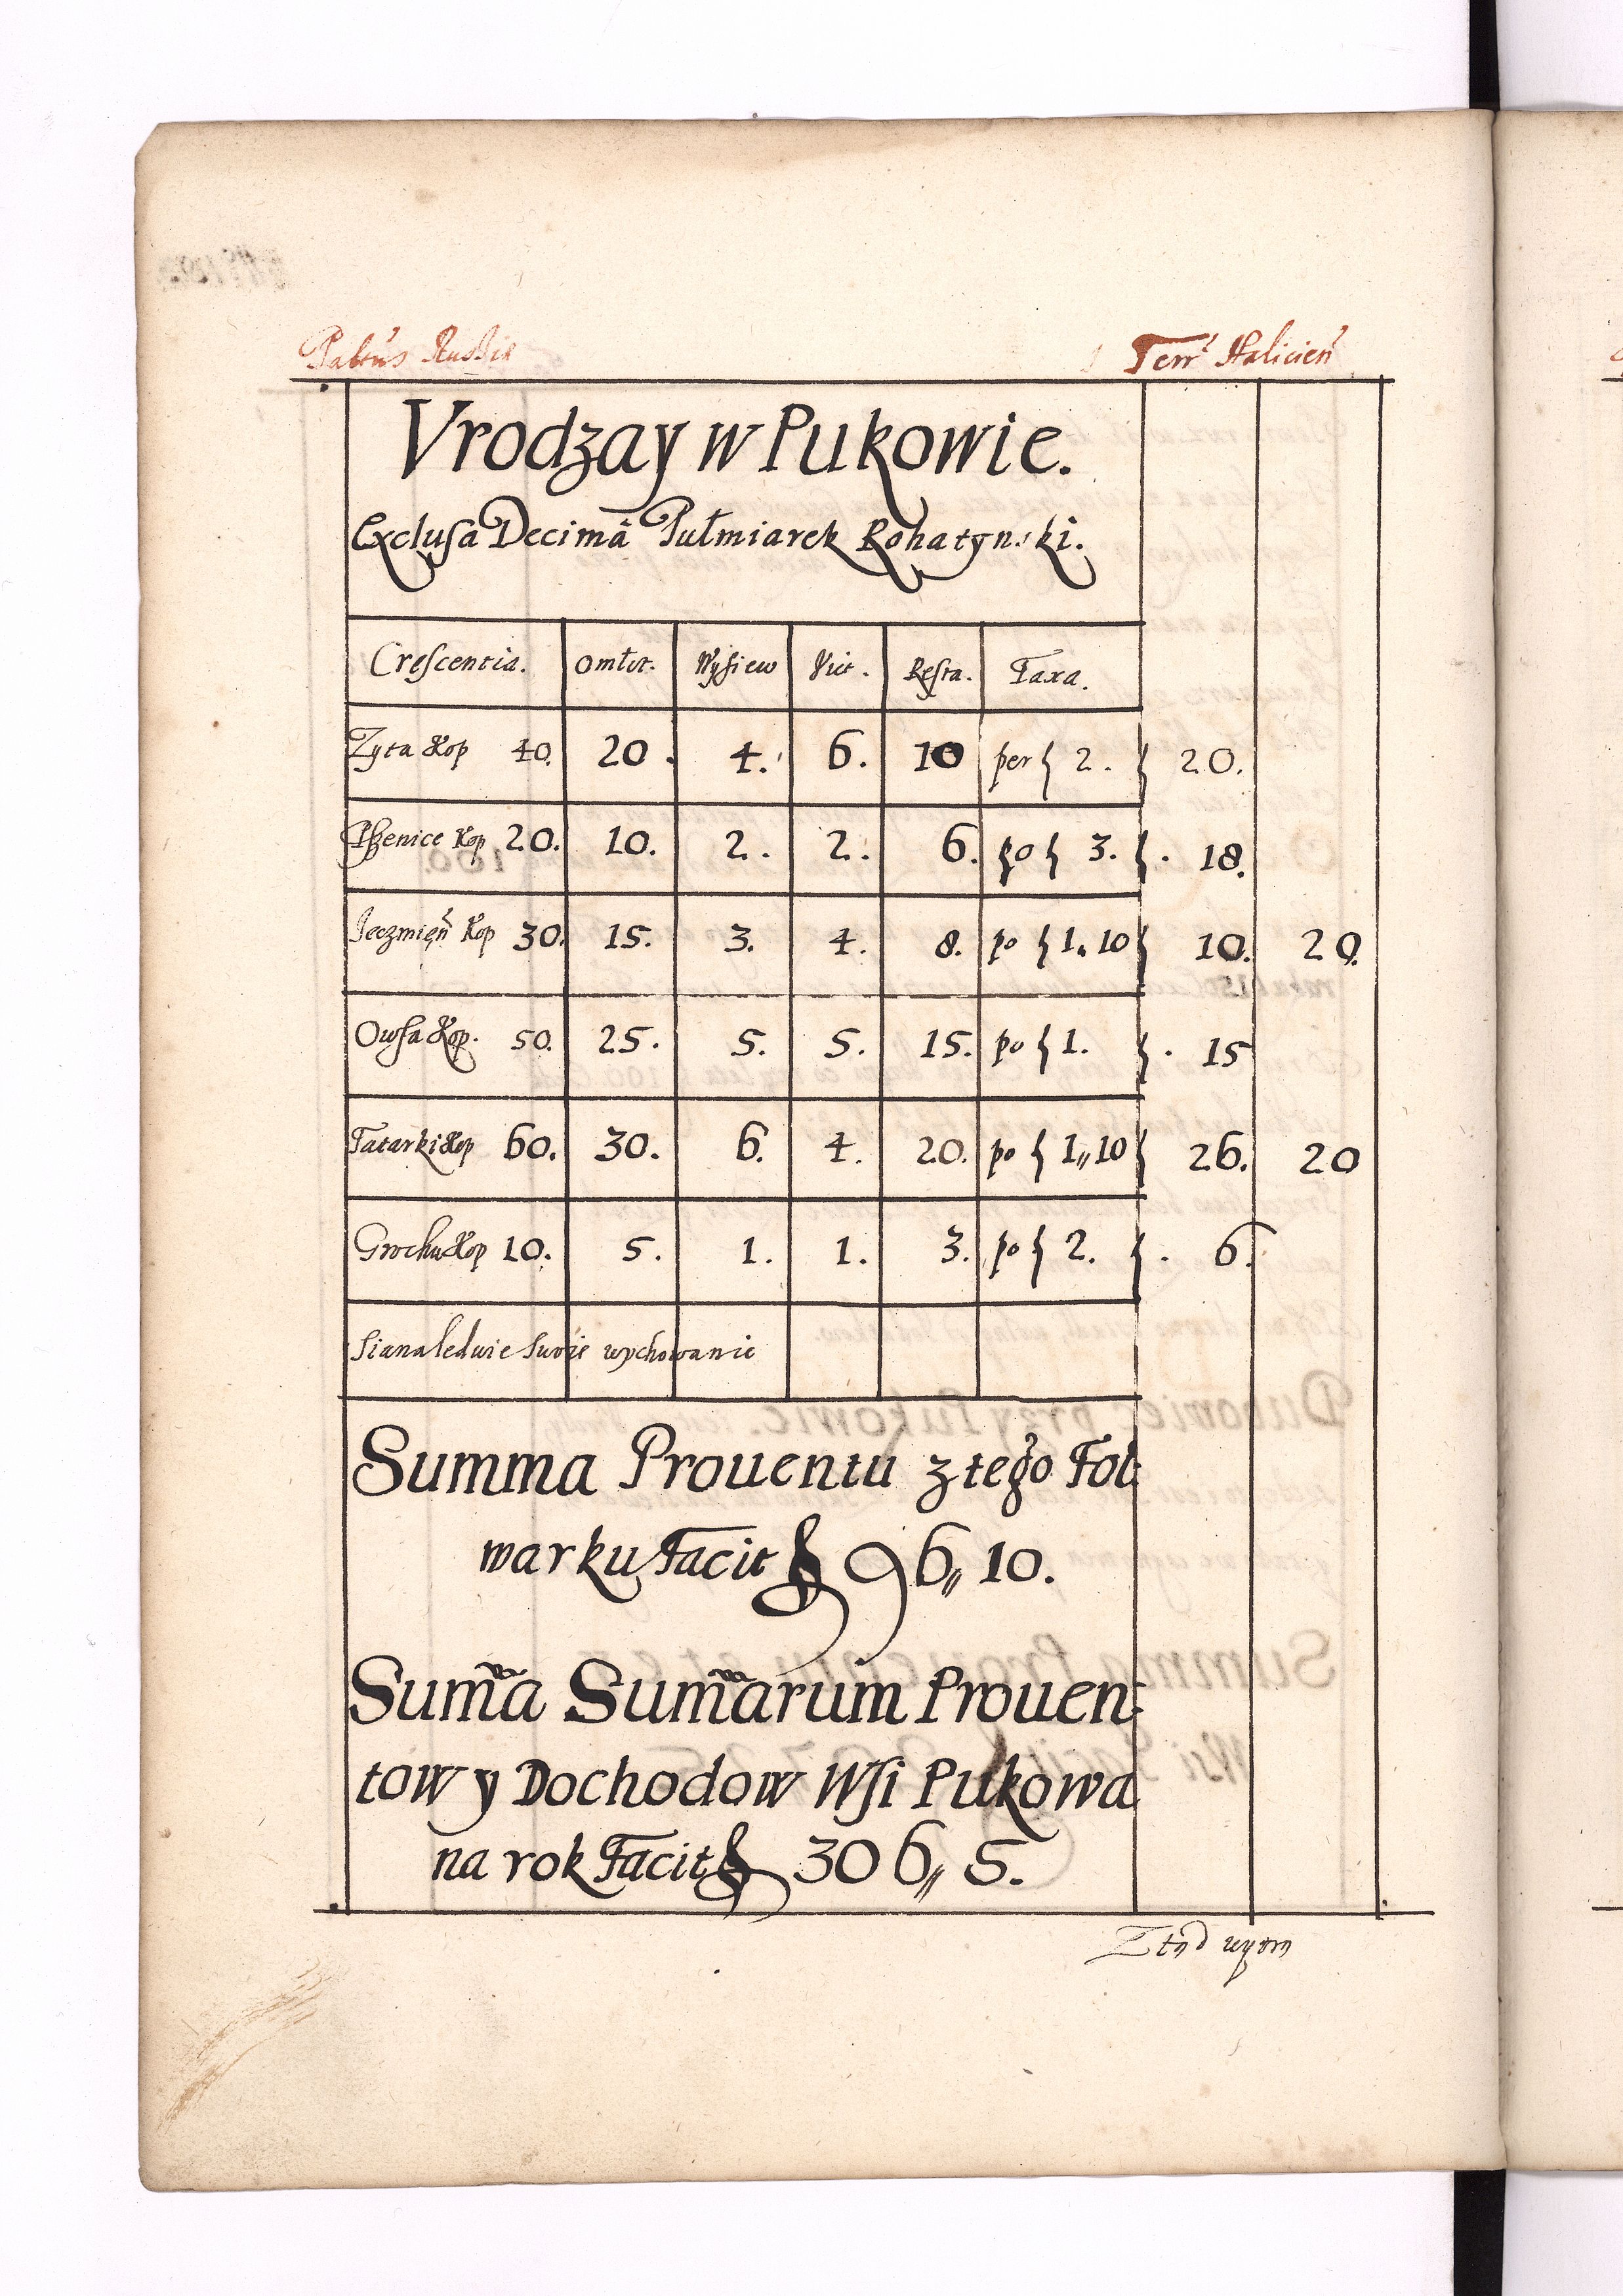 Paltus Russie Terr Halicien
Vrodzay w Pukowie.
Exclusa Decima Pułmiarek Rohatynski.
Crescentia. Omłot. Wysiew Vict. Resta. Taxa.
Zyta Kop 40. 20. 4. 6. 10 per { 2. } 20.
Pszenice Kop 20. 10. 2. 2. 6. po { 3. } 18.
Jeczmięn Kop 30. 15. 3. 4. 8. po { 1. 10 } 10. 20.
Owsa Kop. 50. 25. 5. 5. 15. po { 1. } 15
Tatarki Kop 60. 30. 6. 4. 20. po { 1,, 10 } 26. 20
Grochu Kop 10. 5. 1. 1. 3. po { 2. } 6.
Siana ledwie swoie wychowanie
Summa Prouentu z tego Fol
warku Facit 96,, 10.
Summa Summarum Prouen
tow y Dochodow Wsi Pukowa
na rok Facit 306,, 5.